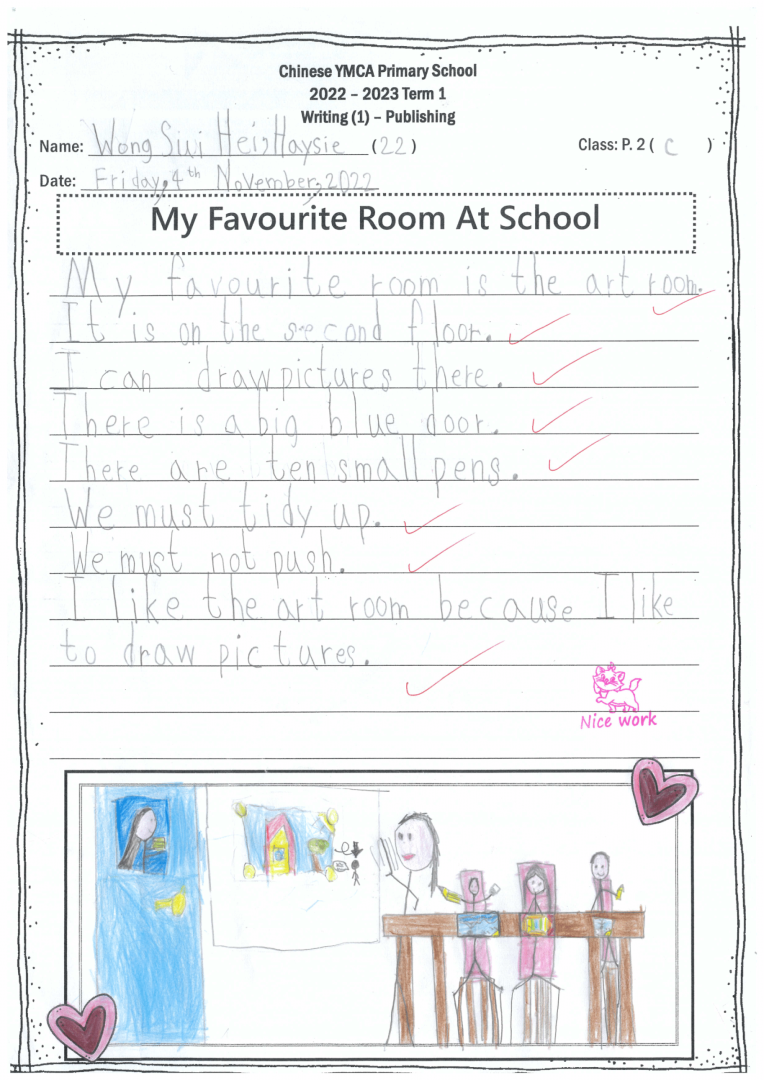 Chinese YMCA Primary School
2022 – 2023 Term 1
Writing (1) – Publishing
Name: Wong Siui Hei, Haysie (22) Class: P. 2 ( C )
Date: Friday, 4th November, 2022
My Favourite Room At School
My favourite room is the art room.
It is on the second floor.
I can draw pictures there.
There is a big blue door.
There are ten small pens.
We must tidy up.
We must not push.
I like the art room because I like
to draw pictures.
Nice work